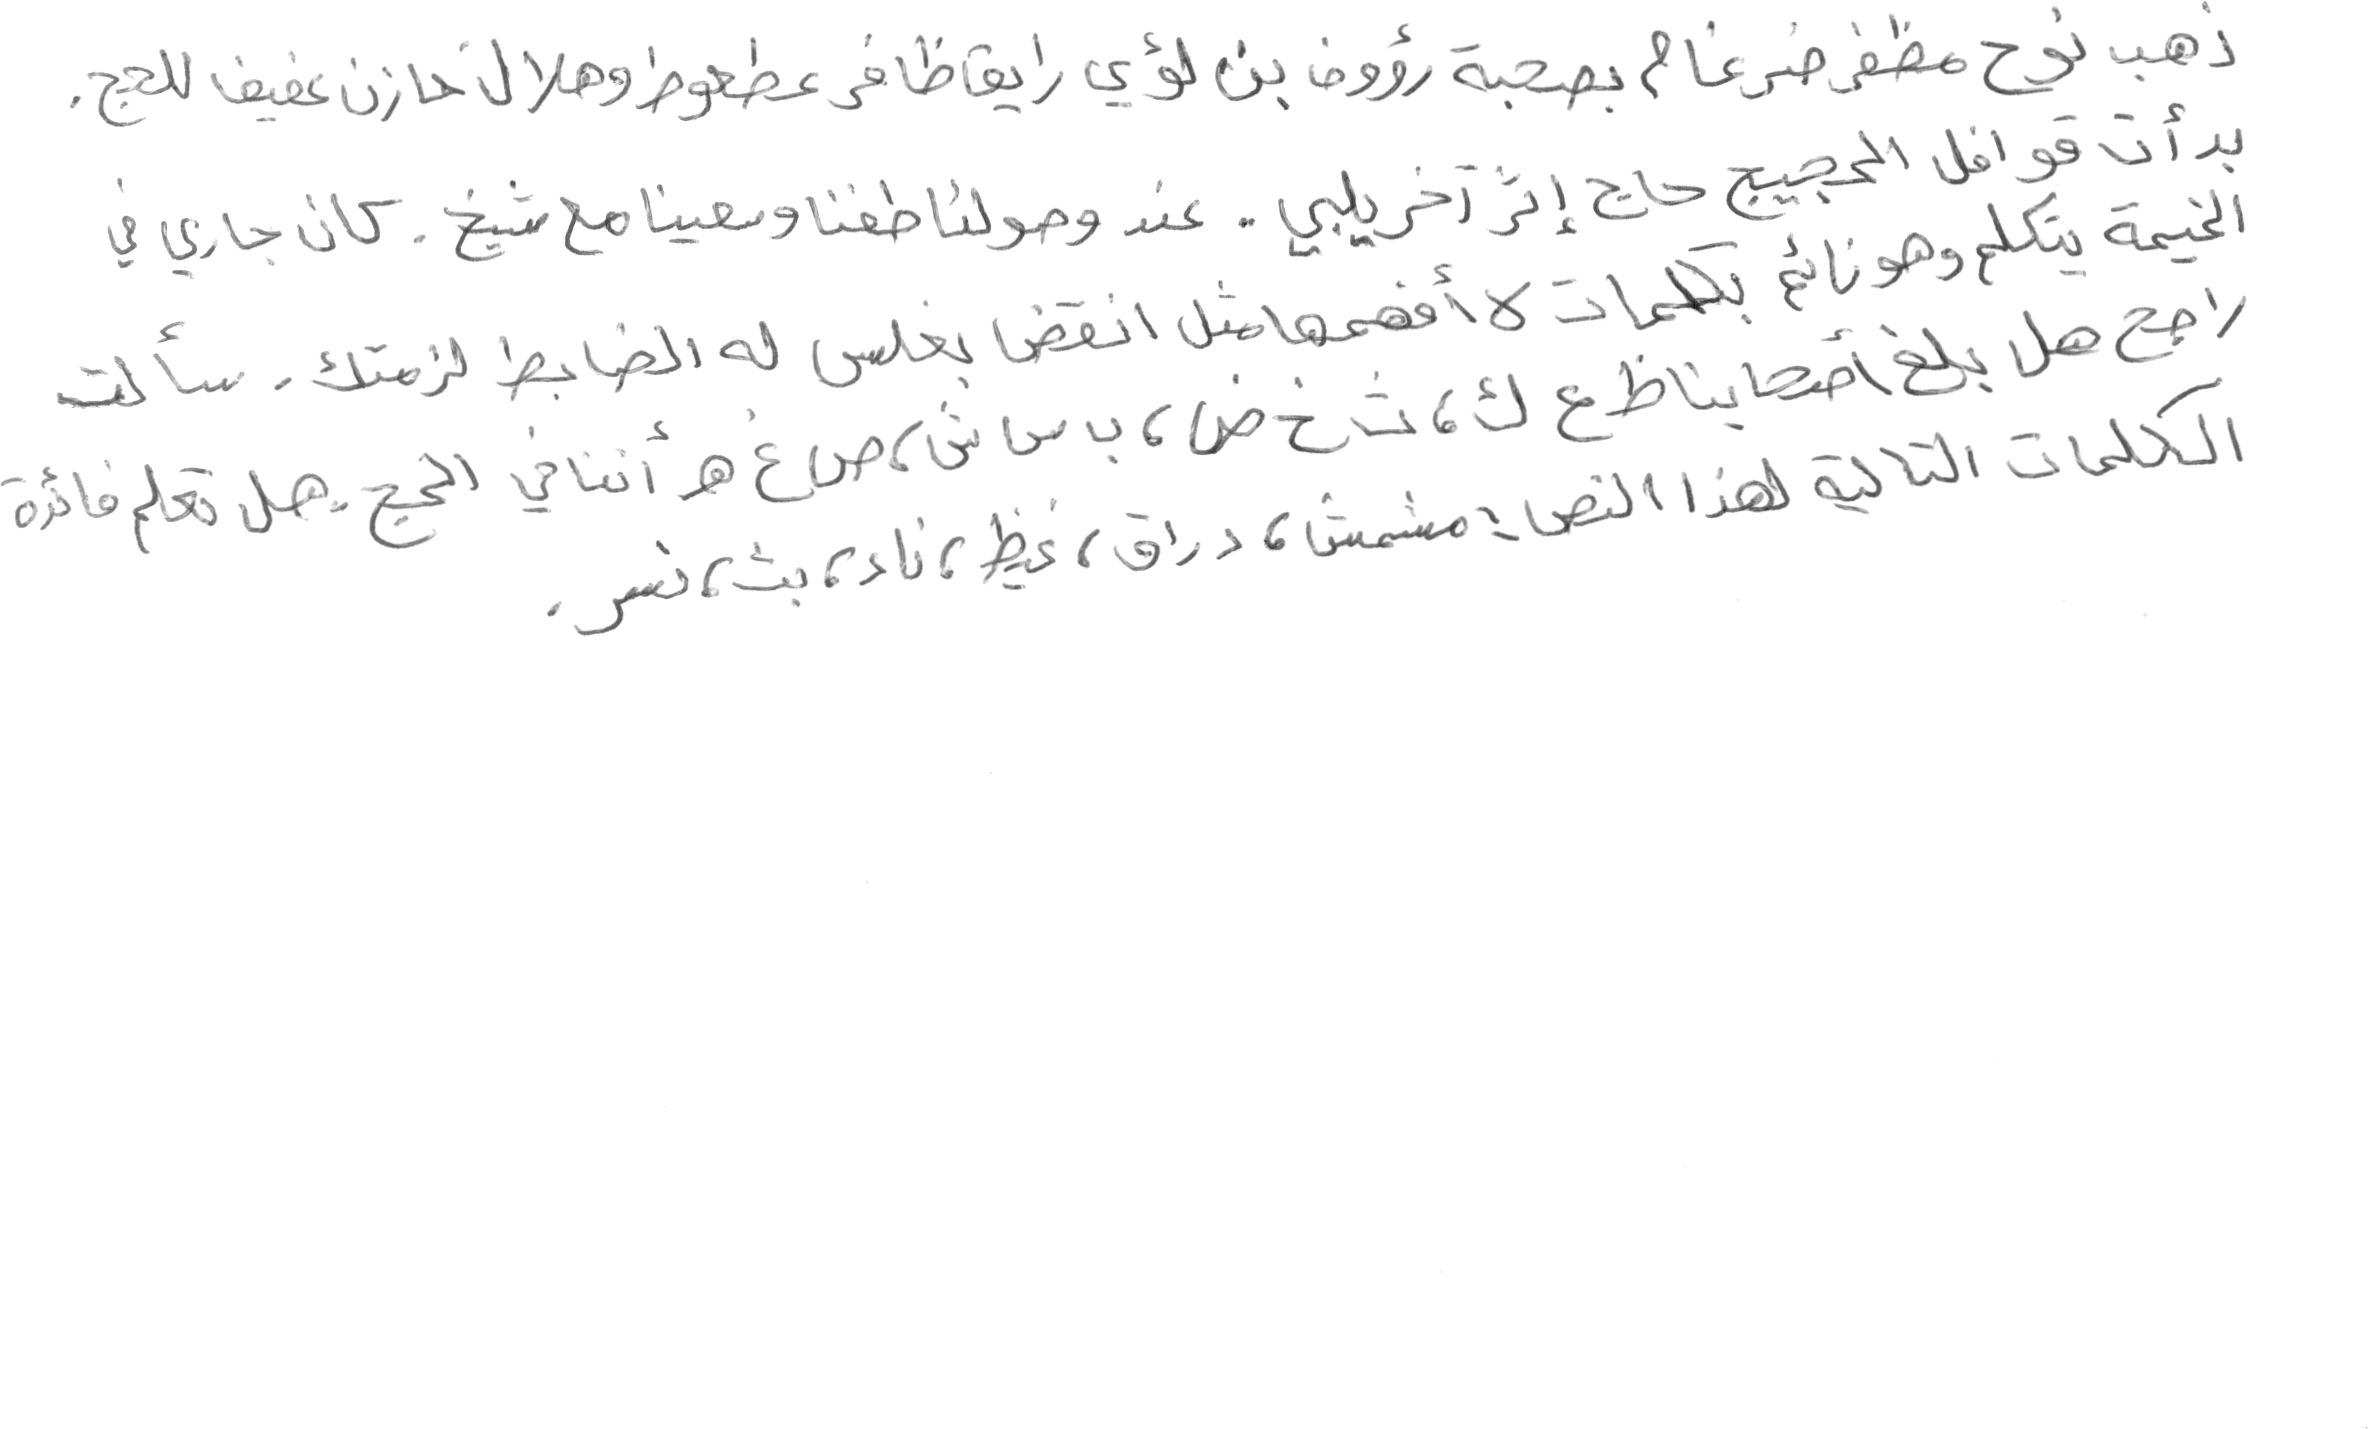 ذهب نوح مظفر ضرغام بصحبة رؤوف بن لؤي رايق ظافر عطعوط وهلال خازن عفيف للحج.
بدأت قوافل الحجيج حاج إثر آخر يلبي.. عند وصولنا طفنا وسعينا مع شيخ. كان جاري في
الخيمة يتكلم وهو نائم بكلمات لا أفهمها مثل انقض بغلس له الضابط لزمتك. سألت
راجح هل بلغ أصحابنا ظ ع ك، ث خ ض، ب س ش، ص غ هـ أننا في الحج. هل تعلم فائدة
الكلمات التالية لهذا النص: مشمش، دراق، غيظ، ناد، بث، نسر.